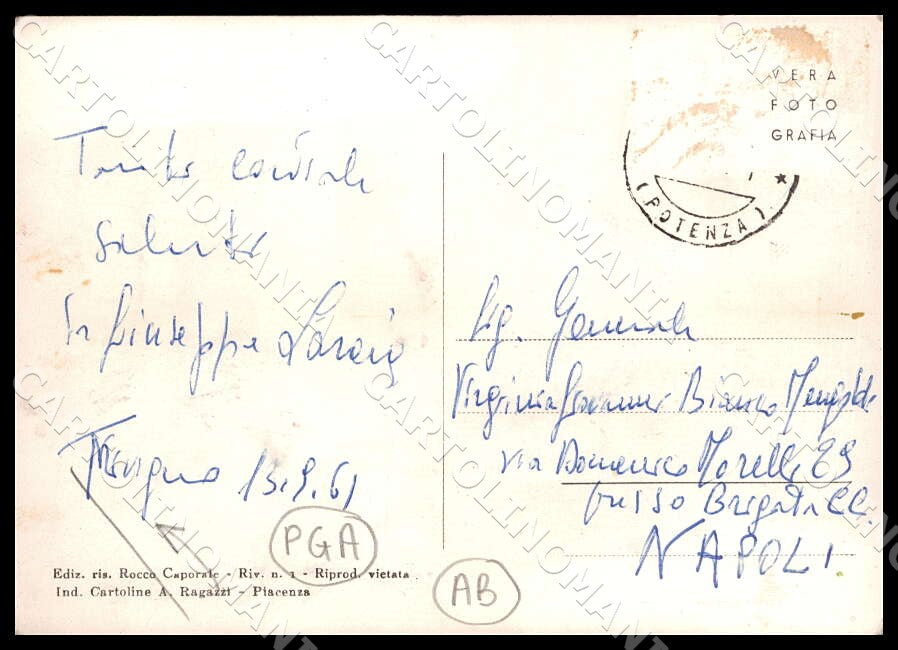 VERA
FOTO
GRAFIA
(POTENZA)
Tante cordiali
saluti
Giuseppe
13.9.61
Sig. Generale
Virginia Bianco
via Domenico Morelli 29
presso Brigata CC.
NAPOLI
PGA
AB
Ediz. ris. Rocco Caporale - Riv. n. 1 - Riprod. vietata
Ind. Cartoline A. Ragazzi - Piacenza
CARTOLINOMANIA